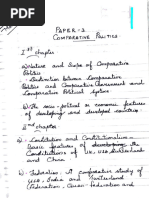 PAPER-2
COMPARATIVE POLITICS
Ist chapter
a) Nature and Scope of Comparative
Politics
- Distinction between Comparative
Politics and Comparative Government and
Comparative Political System
b) The socio-political or economic features
of developing and developed countries
IInd chapter
a) - Constitution and Constitutionalism -
features of developing the
Constitutions of UK, USA, Switzerland
and China
b) - Federalism - A comparative study of
USA, India and Switzerland
(Federation, Quasi-federation and